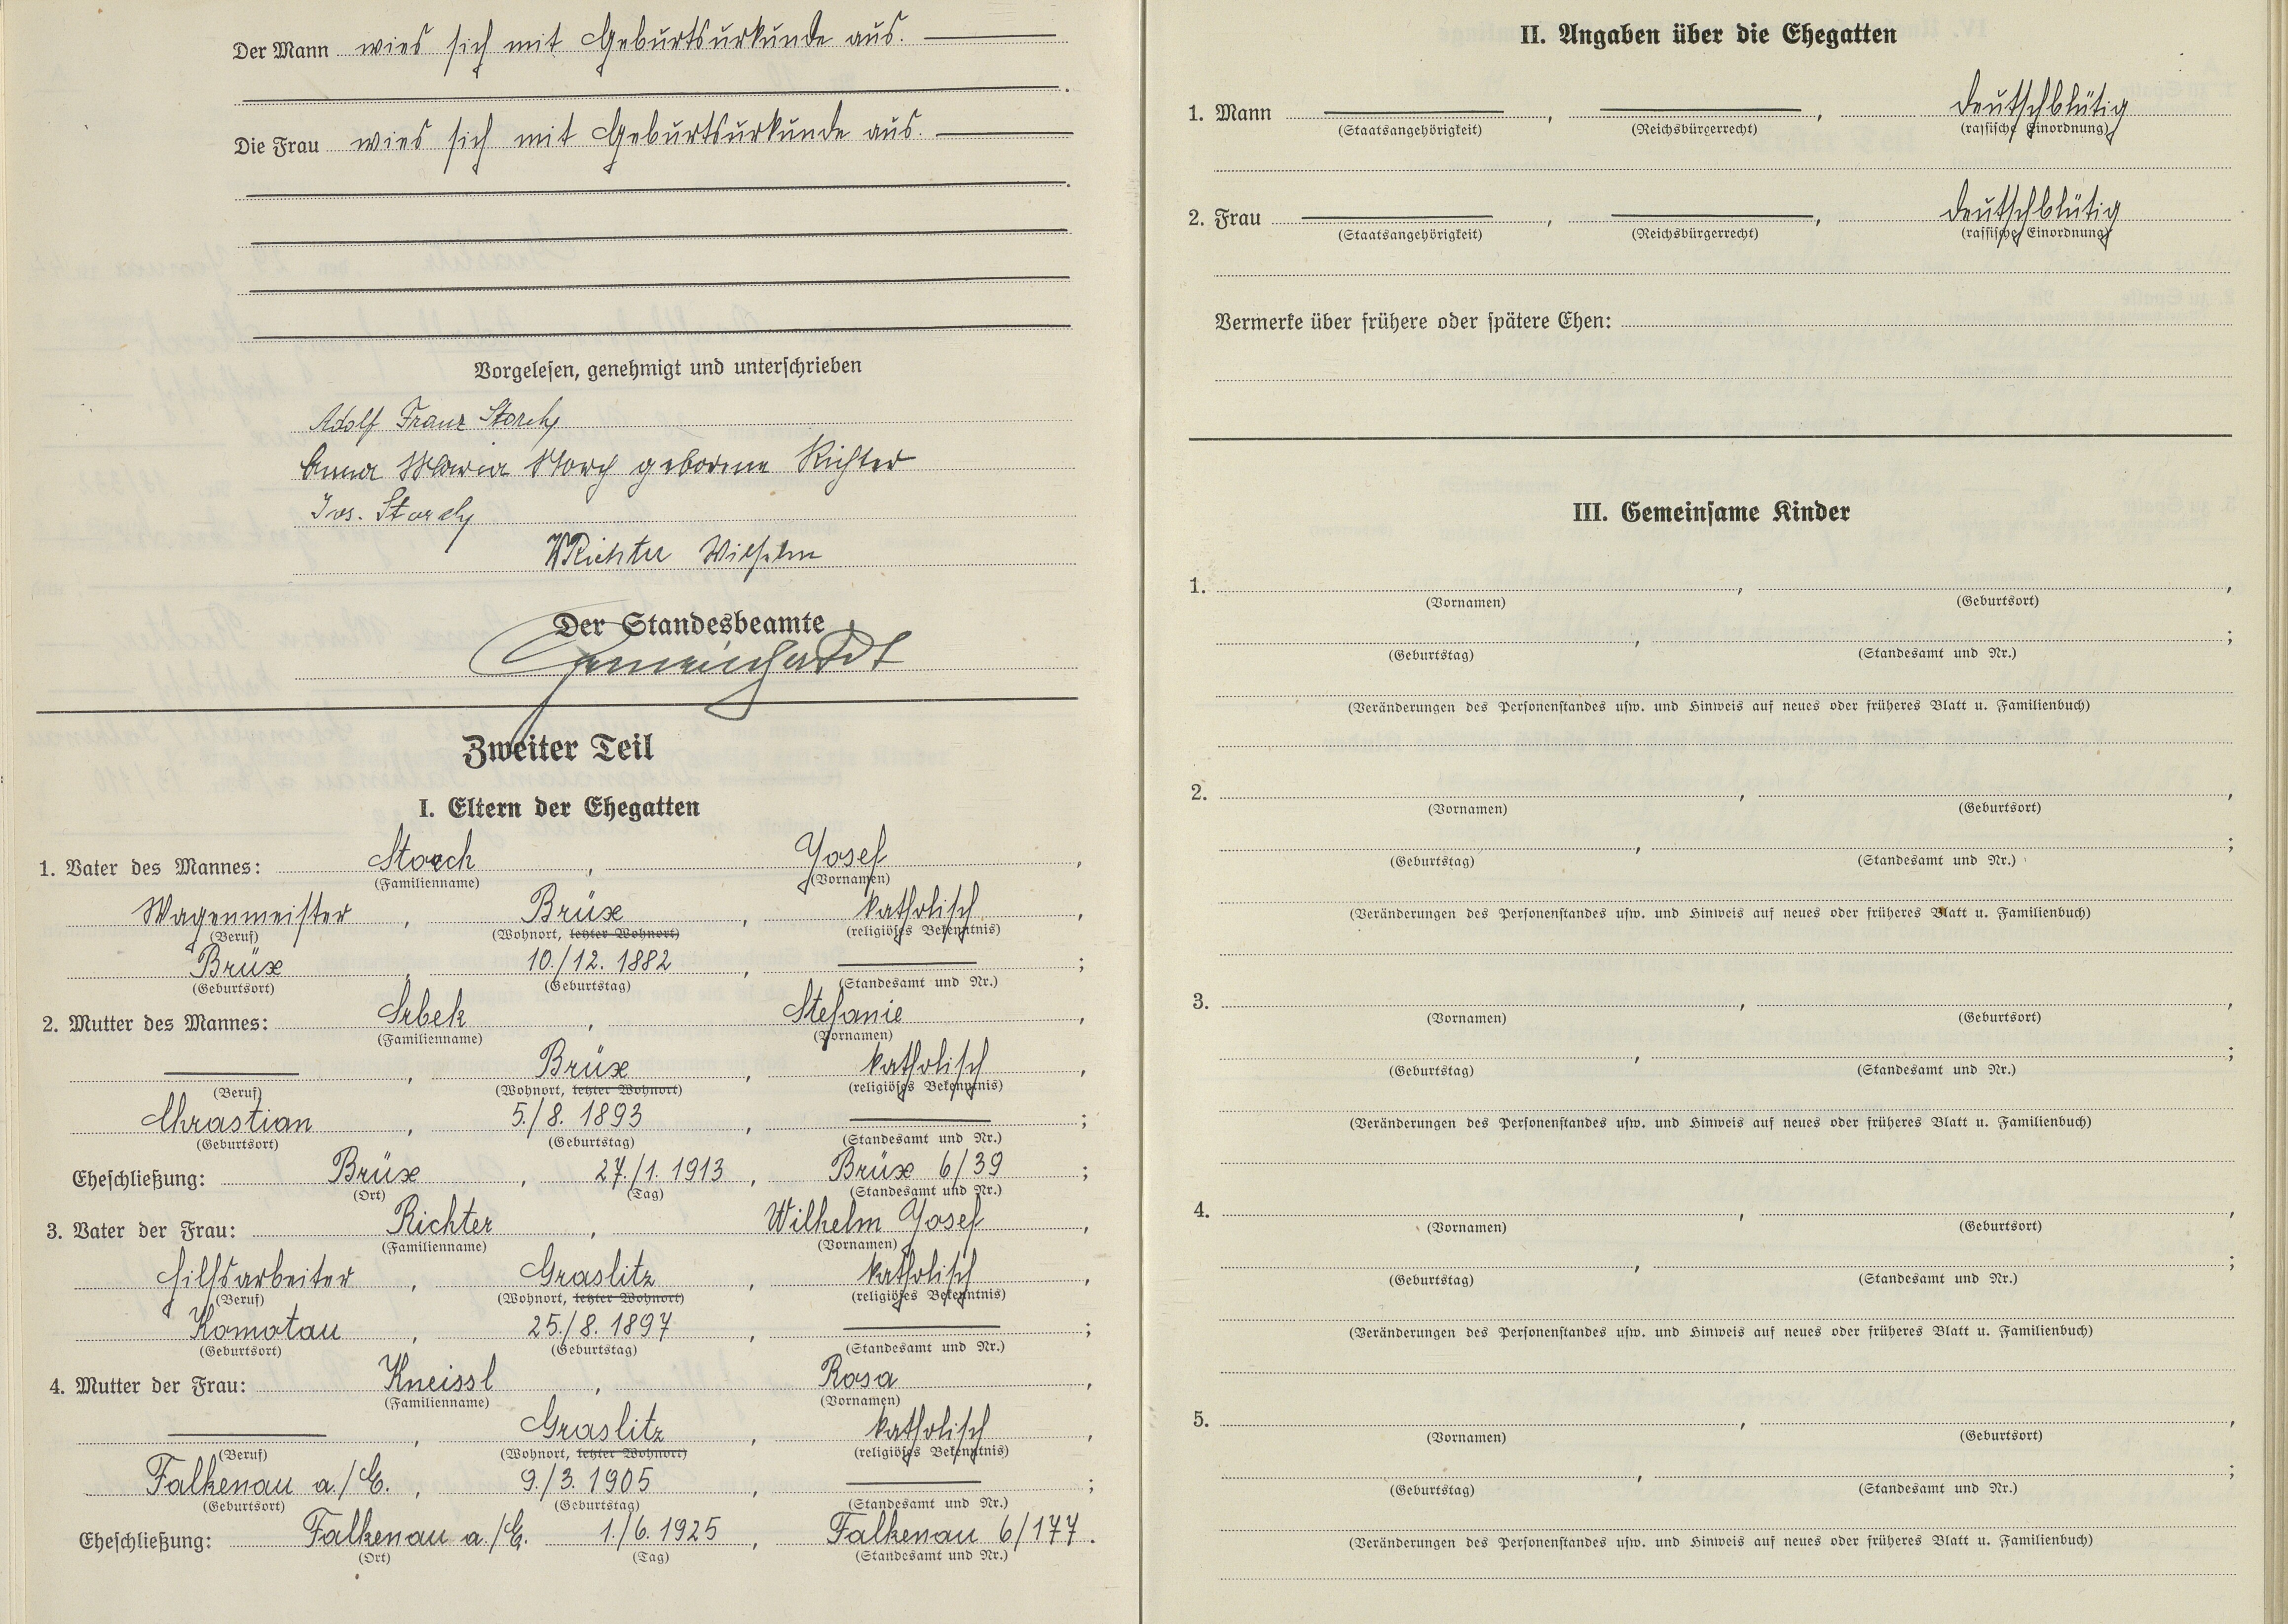 Der Mann wies sich mit Geburtsurkunde aus.
Die Frau wies sich mit Geburtsurkunde aus.
Vorgelesen, genehmigt und unterschrieben
Adolf Franz Storch
Anna Maria Storch geborene Richter
Jos. Storch
Richter Wilhelm
Der Standesbeamte
Zweiter Teil
I. Eltern der Ehegatten
1. Vater des Mannes: Storch, Josef,
(Familienname) (Vornamen)
Wagenmeister, Brüx, katholisch,
(Beruf) (Wohnort, letzter Wohnort) (religiöses Bekenntnis)
Brüx, 10./12. 1882, ;
(Geburtsort) (Geburtstag) (Standesamt und Nr.)
2. Mutter des Mannes: Srbek, Stefanie,
(Familienname) (Vornamen)
, Brüx, katholisch,
(Beruf) (Wohnort, letzter Wohnort) (religiöses Bekenntnis)
Chrastian, 5./8. 1893, ;
(Geburtsort) (Geburtstag) (Standesamt und Nr.)
Eheschließung: Brüx, 27./1. 1913, Brüx 6/39;
(Ort) (Tag) (Standesamt und Nr.)
3. Vater der Frau: Richter, Wilhelm Josef,
(Familienname) (Vornamen)
Hilfsarbeiter, Graslitz, katholisch,
(Beruf) (Wohnort, letzter Wohnort) (religiöses Bekenntnis)
Komotau, 25./8. 1897, ;
(Geburtsort) (Geburtstag) (Standesamt und Nr.)
4. Mutter der Frau: Kneissl, Rosa,
(Familienname) (Vornamen)
, Graslitz, katholisch,
(Beruf) (Wohnort, letzter Wohnort) (religiöses Bekenntnis)
Falkenau a./E., 9./3. 1905, ;
(Geburtsort) (Geburtstag) (Standesamt und Nr.)
Eheschließung: Falkenau a./E. 1./6. 1925, Falkenau 6/177.
(Ort) (Tag) (Standesamt und Nr.)
II. Angaben über die Ehegatten
1. Mann , , deutschblütig
(Staatsangehörigkeit) (Reichsbürgerrecht) (rassische Einordnung)
2. Frau , , deutschblütig
(Staatsangehörigkeit) (Reichsbürgerrecht) (rassische Einordnung)
Vermerke über frühere oder spätere Ehen:
III. Gemeinsame Kinder
1. , ,
(Vornamen) (Geburtsort)
, ;
(Geburtstag) (Standesamt und Nr.)
(Veränderungen des Personenstandes usw. und Hinweis auf neues oder früheres Blatt u. Familienbuch)
2. , ,
(Vornamen) (Geburtsort)
, ;
(Geburtstag) (Standesamt und Nr.)
(Veränderungen des Personenstandes usw. und Hinweis auf neues oder früheres Blatt u. Familienbuch)
3. , ,
(Vornamen) (Geburtsort)
, ;
(Geburtstag) (Standesamt und Nr.)
(Veränderungen des Personenstandes usw. und Hinweis auf neues oder früheres Blatt u. Familienbuch)
4. , ,
(Vornamen) (Geburtsort)
, ;
(Geburtstag) (Standesamt und Nr.)
(Veränderungen des Personenstandes usw. und Hinweis auf neues oder früheres Blatt u. Familienbuch)
5. , ,
(Vornamen) (Geburtsort)
, ;
(Geburtstag) (Standesamt und Nr.)
(Veränderungen des Personenstandes usw. und Hinweis auf neues oder früheres Blatt u. Familienbuch)